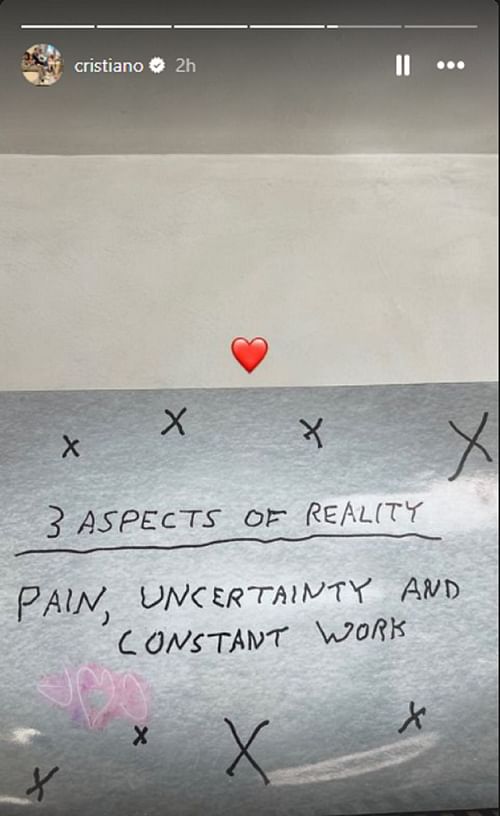 cristiano 2h
x X X X
3 ASPECTS OF REALITY
PAIN, UNCERTAINTY AND
CONSTANT WORK
x X x
x